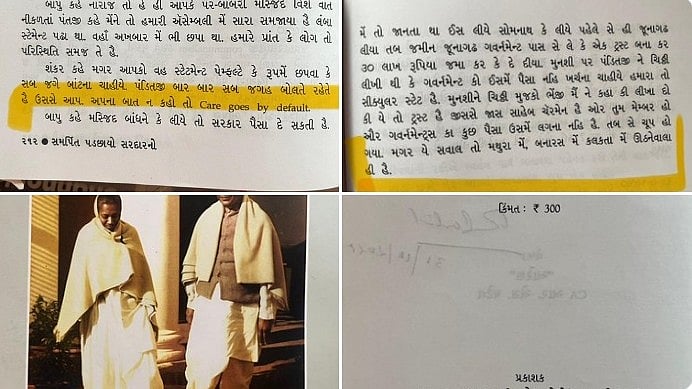 બાપુ કહે નારાજ તો હે હી આપકે પર-બાબરી મસ્જિદ વિશે વાત
નીકળતાં પંતજી કહે મેંને તો હમારી ઍસેમ્બલી મેં સારા સમજાયા હૈ લંબા
સ્ટેમેન્ટ પઢા થા. વહાઁ અખબાર મેં ભી છપા થા. હમારે પ્રાંત કે લોગ તો
પરિસ્થિતિ સમજ તે હૈ.
શંકર કહે મગર આપકો વહ સ્ટેટમેન્ટ પેમ્ફલ્ટે કે રૂપમેં છપવા કે
સબ જગે બાંટના ચાહીયે. પંડિતજી બાર બાર સબ જગાહ બોલતે રહેતે
હે ઉસસે આપ. અપના બાત ન કહો તો Care goes by default.
બાપુ કહે મસ્જિદ બાંધને કે લીયે તો સરકાર પૈસા દે સકતી હૈ.
૨૧૨ ● સમર્પિત પડછાયો સરદારનો
મેં તો જાનતા થા ઈસ લીયે સોમનાથ કે લીયે પહેલે સે હી જૂનાગઢ
લીયા તબ જમીન જૂનાગઢ ગવર્નમેન્ટ પાસ સે લે કે એક ટ્રસ્ટ બના કર
૩૦ લાખ રૂપિયા જમા કર કે દે દીયા. મુનશી પર પંડિતજી ને ચિઠ્ઠી
લીખી થી કે ગવર્નમેન્ટ કો ઇસમેં પૈસા નહિ ખર્ચના ચાહીયે હમારા તો
સીક્યુલર સ્ટેટ હૈ. મુનશીને ચિઠ્ઠી મુજકો ભેજી મૈં ને કહા કી લીખા દો
કી યે તો ટ્રસ્ટ હૈ જીસસે જામ સાહેબ ચૅરમેન હૈ ઓર તુમ મેમ્બર હો
ઔર ગવર્નમેન્ટ્સ કા કુછ પૈસા ઉસમેં લગના નહિ હૈ. તબ સે ચૂપ હો
ગયા. મગર યે સવાલ તો મથુરા મેં, બનારસ મેં કલકતા મેં ઊઠનેવાલા
હી હૈ.
કિંમત : ₹ 300
પ્રકાશક